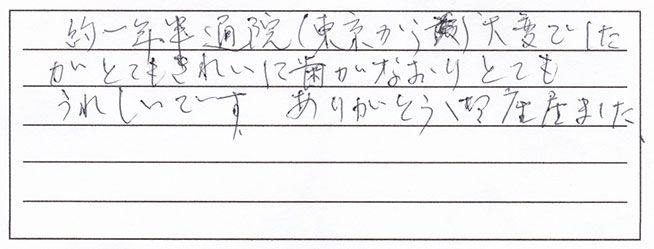 約一年半通院(東京から)大変でした
がとてもきれいに歯がなおりとても
うれしいです ありがとう御座座ました